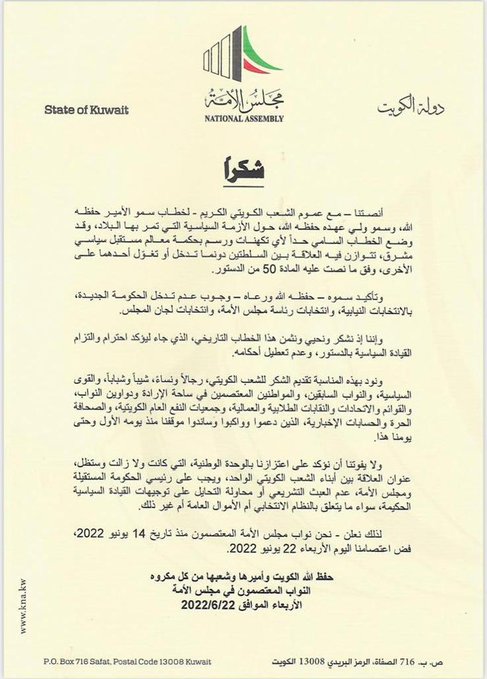 مجلس الأمة
NATIONAL ASSEMBLY
State of Kuwait
دولة الكويت
شكراً
أنصتنا – مع عموم الشعب الكويتي الكريم - لخطاب سمو الأمير حفظه
الله، وسمو ولي عهده حفظه الله، حول الأزمة السياسية التي تمر بها البلاد، وقد
وضع الخطاب السامي حداً لأي تكهنات ورسم بحكمة معالم مستقبل سياسي
مشرق، تتوازن فيه العلاقة بين السلطتين دونما تدخل أو تغوّل أحدهما على
الأخرى، وفق ما نصت عليه المادة 50 من الدستور.
وتأكيد سموه – حفظه الله ورعاه – وجوب عدم تدخل الحكومة الجديدة،
بالانتخابات النيابية، وانتخابات رئاسة مجلس الأمة، وانتخابات لجان المجلس.
وإننا إذ نشكر ونحيي ونثمن هذا الخطاب التاريخي، الذي جاء ليؤكد احترام والتزام
القيادة السياسية بالدستور، وعدم تعطيل أحكامه.
ونود بهذه المناسبة تقديم الشكر للشعب الكويتي، رجالاً ونساءً، شيباً وشباباً، والقوى
السياسية، والنواب السابقين، والمواطنين المعتصمين في ساحة الإرادة ودواوين النواب،
والقوائم والاتحادات والنقابات الطلابية والعمالية، وجمعيات النفع العام الكويتية، والصحافة
الحرة والحسابات الإخبارية، الذين دعموا وواكبوا وساندوا موقفنا منذ يومه الأول وحتى
يومنا هذا.
ولا يفوتنا أن نؤكد على اعتزازنا بالوحدة الوطنية، التي كانت ولا زالت وستظل،
عنوان العلاقة بين أبناء الشعب الكويتي الواحد، ويجب على رئيسي الحكومة المستقيلة
ومجلس الأمة، عدم العبث التشريعي أو محاولة التحايل على توجيهات القيادة السياسية
الحكيمة، سواء ما يتعلق بالنظام الانتخابي أم الأموال العامة أم غير ذلك.
لذلك نعلن - نحن نواب مجلس الأمة المعتصمون منذ تاريخ 14 يونيو 2022،
فض اعتصامنا اليوم الأربعاء 22 يونيو 2022.
حفظ الله الكويت وأميرها وشعبها من كل مكروه
النواب المعتصمون في مجلس الأمة
الأربعاء الموافق 2022/6/22
www.kna.kw
P.O. Box 716 Safat, Postal Code 13008 Kuwait
ص. ب. 716 الصفاة، الرمز البريدي 13008 الكويت